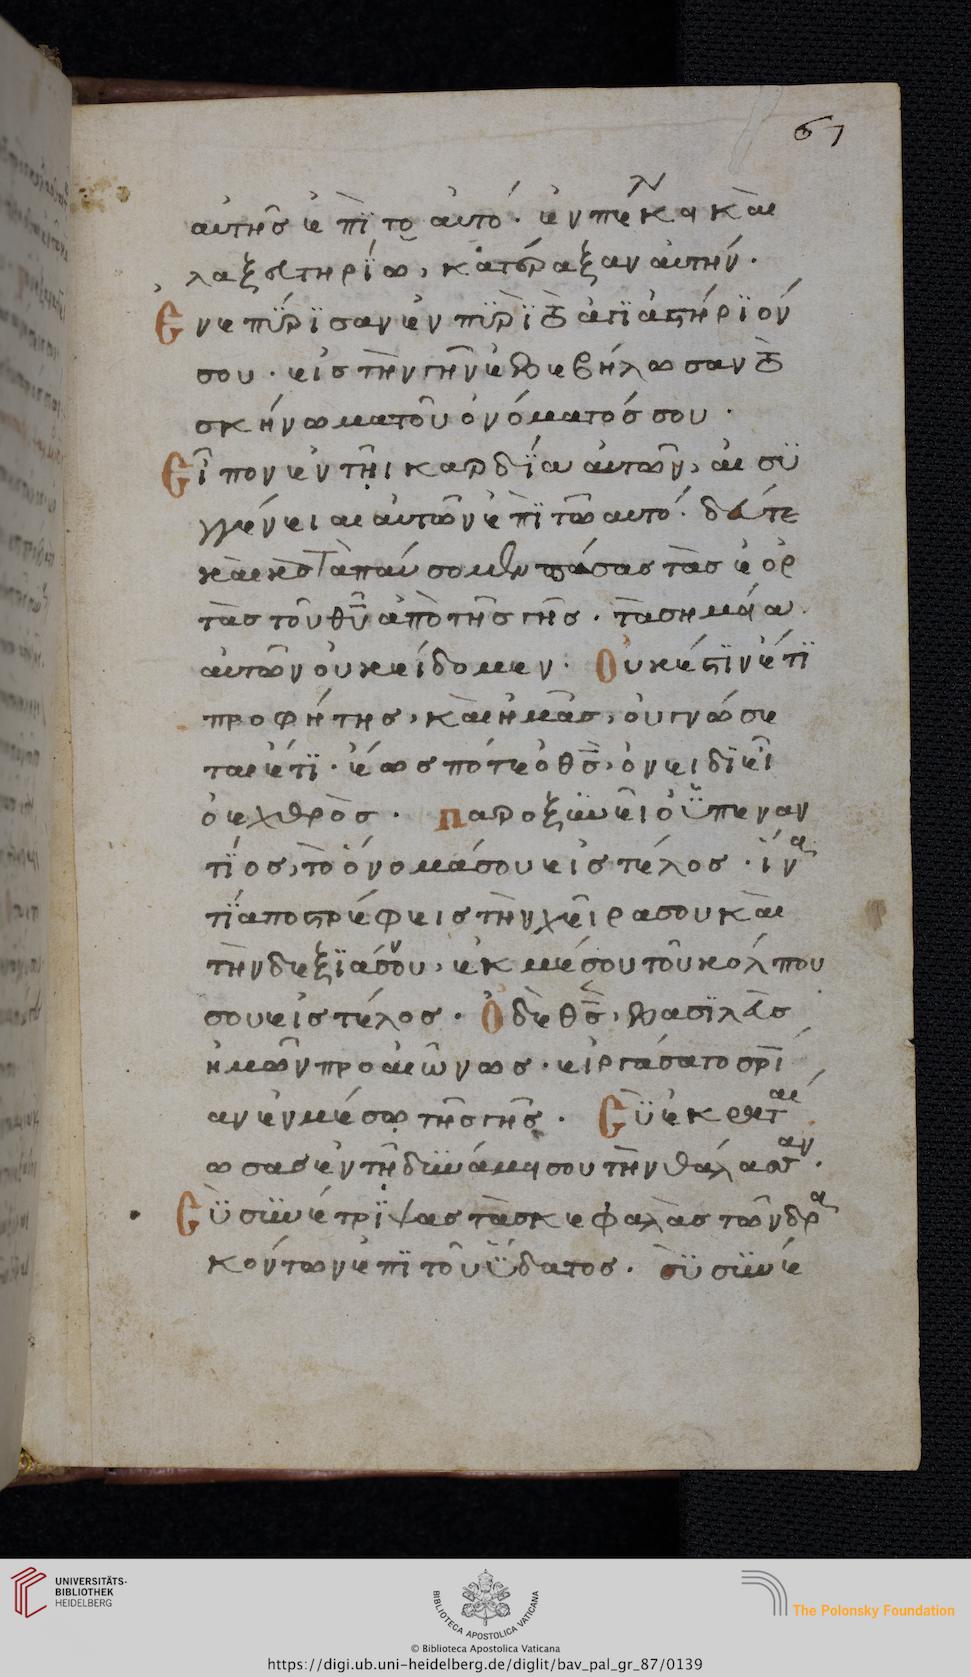 67
αὐτῆς ἐπὶ το αὐτό· ἐν πελέκει καὶ
λαξευτηρίω, κατέραξαν αὐτήν·
Ἐνεπύρισαν ἐν πυρὶ τὸ ἁγιαστήριόν
σου· εἰς τὴν γῆν ἐβεβήλωσαν τὸ
σκήνωμα τοῦ ὀνόματός σου·
Εἶπον ἐν τῆι καρδία αὐτῶν, αἱ συ
γγένειαι αὐτῶν ἐπὶ τῶ αυτό· δεῦτε
καὶ κατὰπαύσομεν πάσας τὰς ἑορ
τὰς τοῦ θῦ ἀπὸ τῆς γῆς· τὰ σημεία
αυτῶν οὐκ είδομεν· Οὐκέστιν έτι
προφήτης, καὶ ἡμᾶς, οὐ γνώσε
ται έτι· ἕως πότε ὁ θς, ὀνειδιεῖ
ὁ εχθρὸς· παροξυνεῖ ὁ ὑπεναν
τίος, τὸ ὄνομά σου εἰς τέλος· ἵνα
τί αποστρέφεις τὴν χεῖρα σου καὶ
τὴν δεξϊάν σου, ἐκ μέσου τοῦ κόλπου
σου εἰς τέλος· Ὁ δὲ θς, βασιλεὺς
ἡμῶν προ αιῶνως· εἰργάσατο σρι
αν ἐν μέσω τῆς γῆς· Σὺ ἐκραταί
ωσας ἐν τῆ δυνάμει σου τὴν θάλασσαν·
Σὺ συνέτριψας τὰς κεφαλὰς τῶν δρα
κόντων ἐπὶ τοῦ ὕδατος· σὺ συνέ
UNIVERSITÄTS-
BIBLIOTHEK
HEIDELBERG
BIBLIOTECA APOSTOLICA VATICANA
The Polonsky Foundation
© Biblioteca Apostolica Vaticana
https://digi.ub.uni-heidelberg.de/diglit/bav_pal_gr_87/0139